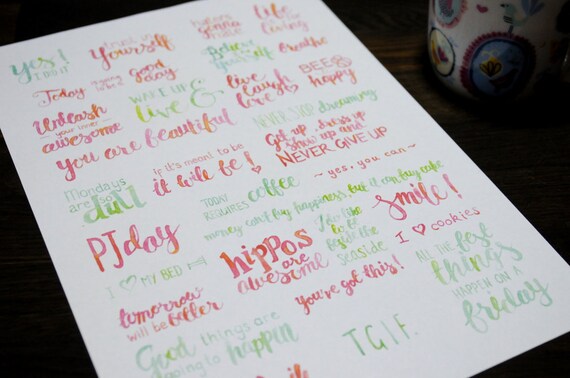 yes!
I DO IT
trust in
Yourself
haters
gonna
hate
Life
is for
living
Believe
in
yourself
breathe
Today
is going to be a
good
day
WAKE UP
&
live
live
laugh
love
BEE
happy
Unleash
your inner
awesome
you are beautiful
NEVER STOP dreaming
Get up, dress up
show up and
NEVER GIVE UP
if it's meant to be
it will be!
~ yes, you can ~
Mondays
are so
dull
TODAY
REQUIRES
coffee
money can't buy happiness, but it can buy cake
smile!
PJday
hippos
are
awesome
seaside
I ♡ cookies
I ♡ MY BED
you've got this!
ALL THE best
things
HAPPEN ON A
friday
tomorrow
will be better
Good things are
going to happen
T.G.I.F.